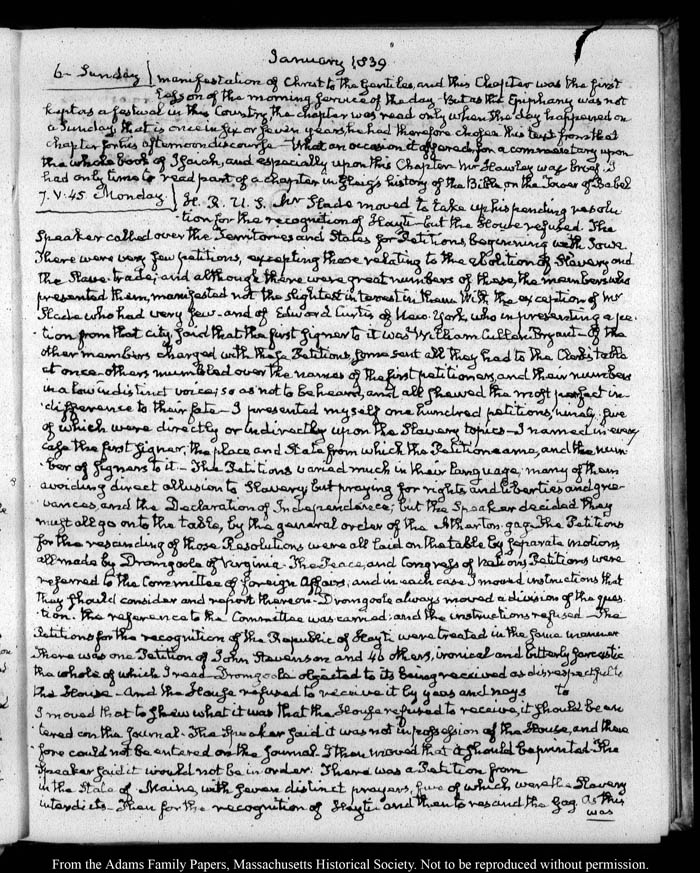 January 1839
6. Sunday } manifestation of Christ to the Gentiles, and this Chapter was the first
Lesson of the morning service of the day. But as the Epiphany was not
kept as a festival in this Country, the chapter was read only when the day happened on
a Sunday, that is once in six or seven years, he had therefore chosen his text from that
chapter for his afternoon discourse — What an occasion it offered, for a commentary upon
the whole book of Isaiah, and especially upon this Chapter. Mr Hawley was brief. I
had only time to read part of a chapter in Gleig's history of the Bible on the Tower of Babel
7. V. 45. Monday } H. R. U. S. Mr Slade moved to take up his pending resolu-
tion for the recognition of Hayti — but the House refused. The
Speaker called over the Territories and States for Petitions, beginning with Iowa.
There were very few petitions, excepting those relating to the abolition of Slavery and
the Slave-trade; and although there were great numbers of these, the members who
presented them, manifested not the slightest interest in them with the exception of Mr
Slade who had very few — and of Edward Curtis of New-York, who in presenting a pe-
tition from that city, said that the first signer to it was William Cullen Bryant — Of the
other members charged with these Petitions, some sent all they had to the Clerk's table
at once — others mumbled over the names of the first petitioners, and their numbers
in a low indistinct voice, so as not to be heard, and all shewed the most perfect in-
difference to their fate — I presented myself one hundred petitions, ninety-five
of which were directly or indirectly upon the Slavery topics — I named in every
case the first signer, the place and State from which the Petition came, and the num-
ber of signers to it — The Petitions varied much in their language; many of them
avoiding direct allusion to Slavery but praying for rights and liberties and grie-
vances, and the Declaration of Independence; but the Speaker decided they
must all go on to the table, by the general order of the Atherton-gag. The Petitions
for the rescinding of those Resolutions were all laid on the table by separate motions
all made by Dromgoole of Virginia — The Peace, and Congress of Nations Petitions were
referred to the Committee of foreign Affairs, and in each case I moved instructions that
they should consider and report thereon — Dromgoole always moved a division of the ques-
tion. the reference to the Committee was carried: and the instructions refused — The
Petitions for the recognition of the Republic of Hayti were treated in the same manner
There was one Petition of John Stevenson and 40 others, ironical and bitterly sarcastic
the whole of which I read — Dromgoole objected to its being received as disrespectful to
the House — And the House refused to receive it by yeas and nays to
I moved that to shew what it was that the House refused to receive, it should be en-
tered on the Journal — The Speaker said it was not in possession of the House, and there-
fore could not be entered on the Journal. I then moved that it should be printed — The
Speaker said it would not be in order. There was a Petition from
in the State of Maine, with seven distinct prayers, five of which were the Slavery
interdicts — Then for the recognition of Hayti and then to rescind the Gag. As this
was
From the Adams Family Papers, Massachusetts Historical Society. Not to be reproduced without permission.